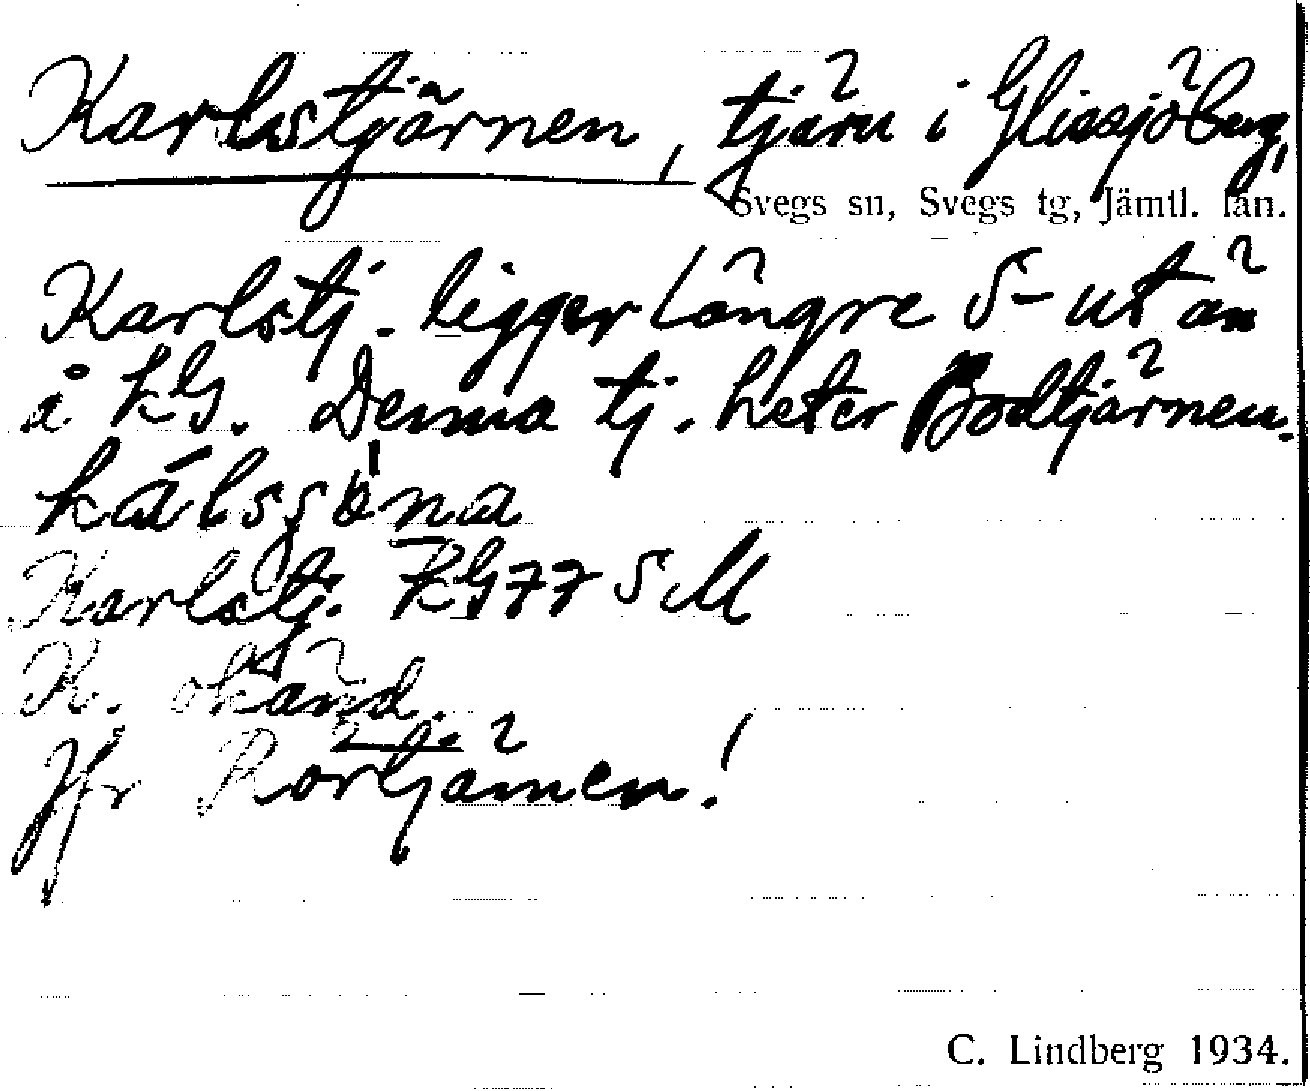 Karlstjärnen, tjärn i Glissjöberg,
Svegs sn, Svegs tg, Jämtl. län.
Karlstj. ligger längre S-ut än
å KG. Denna tj. heter Bodtjärnen.
Karlstj. KG77 SM
K. okänd.
Jfr Rörtjärnen!
C. Lindberg 1934.